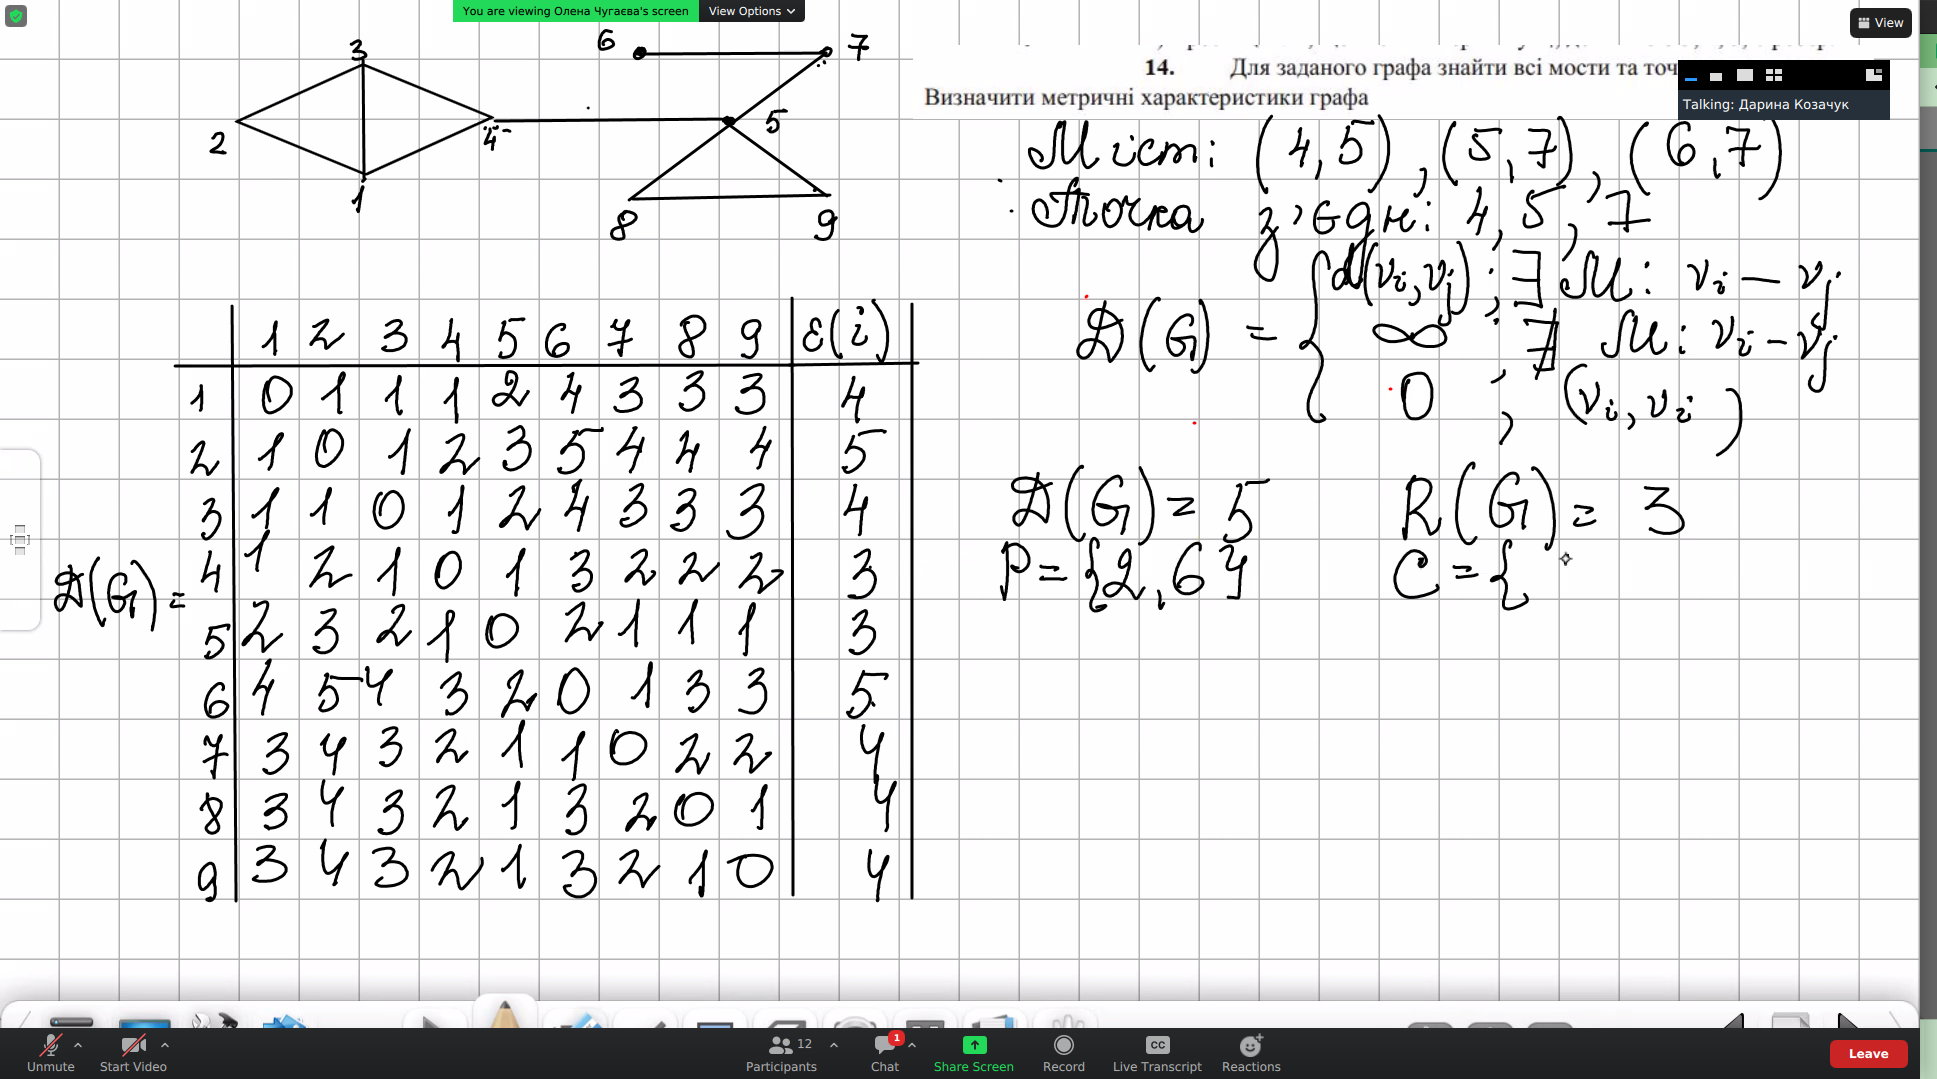 You are viewing Олена Чугаєва's screen View Options
View
3
6
7
2
4
5
1
8
9
14. Для заданого графа знайти всі мости та точ
Визначити метричні характеристики графа
Talking: Дарина Козачук
Міст: (4,5), (5,7), (6,7)
Точка з'єдн: 4, 5, 7
D(G) = { d(vi,vj); ∃ M: vi — vj
∞ ; ∄ M: vi — vj
0 ; (vi, vi)
D(G) = 5 R(G) = 3
P = {2,6} C = {
D(G) =
1 2 3 4 5 6 7 8 9 ε(i)
1 0 1 1 1 2 4 3 3 3 4
2 1 0 1 2 3 5 4 4 4 5
3 1 1 0 1 2 4 3 3 3 4
4 1 2 1 0 1 3 2 2 2 3
5 2 3 2 1 0 2 1 1 1 3
6 4 5 4 3 2 0 1 3 3 5
7 3 4 3 2 1 1 0 2 2 4
8 3 4 3 2 1 3 2 0 1 4
9 3 4 3 2 1 3 2 1 0 4
Unmute Start Video Participants 12 Chat 1 Share Screen Record CC Live Transcript Reactions Leave